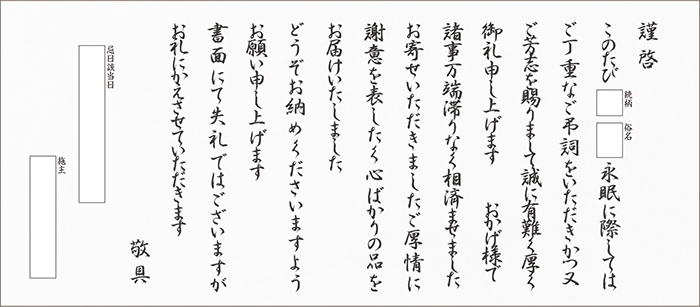 謹啓
このたび 続柄 俗名 永眠に際しては
ご丁重なご弔詞をいただきかつ又
ご芳志を賜りまして誠に有難く厚く
御礼申し上げます おかげ様で
諸事万端滞りなく相済ませました
お寄せいただきましたご厚情に
謝意を表したく心ばかりの品を
お届けいたしました
どうぞお納めくださいますよう
お願い申し上げます
書面にて失礼ではございますが
お礼にかえさせていただきます
敬具
忌日該当日
施主